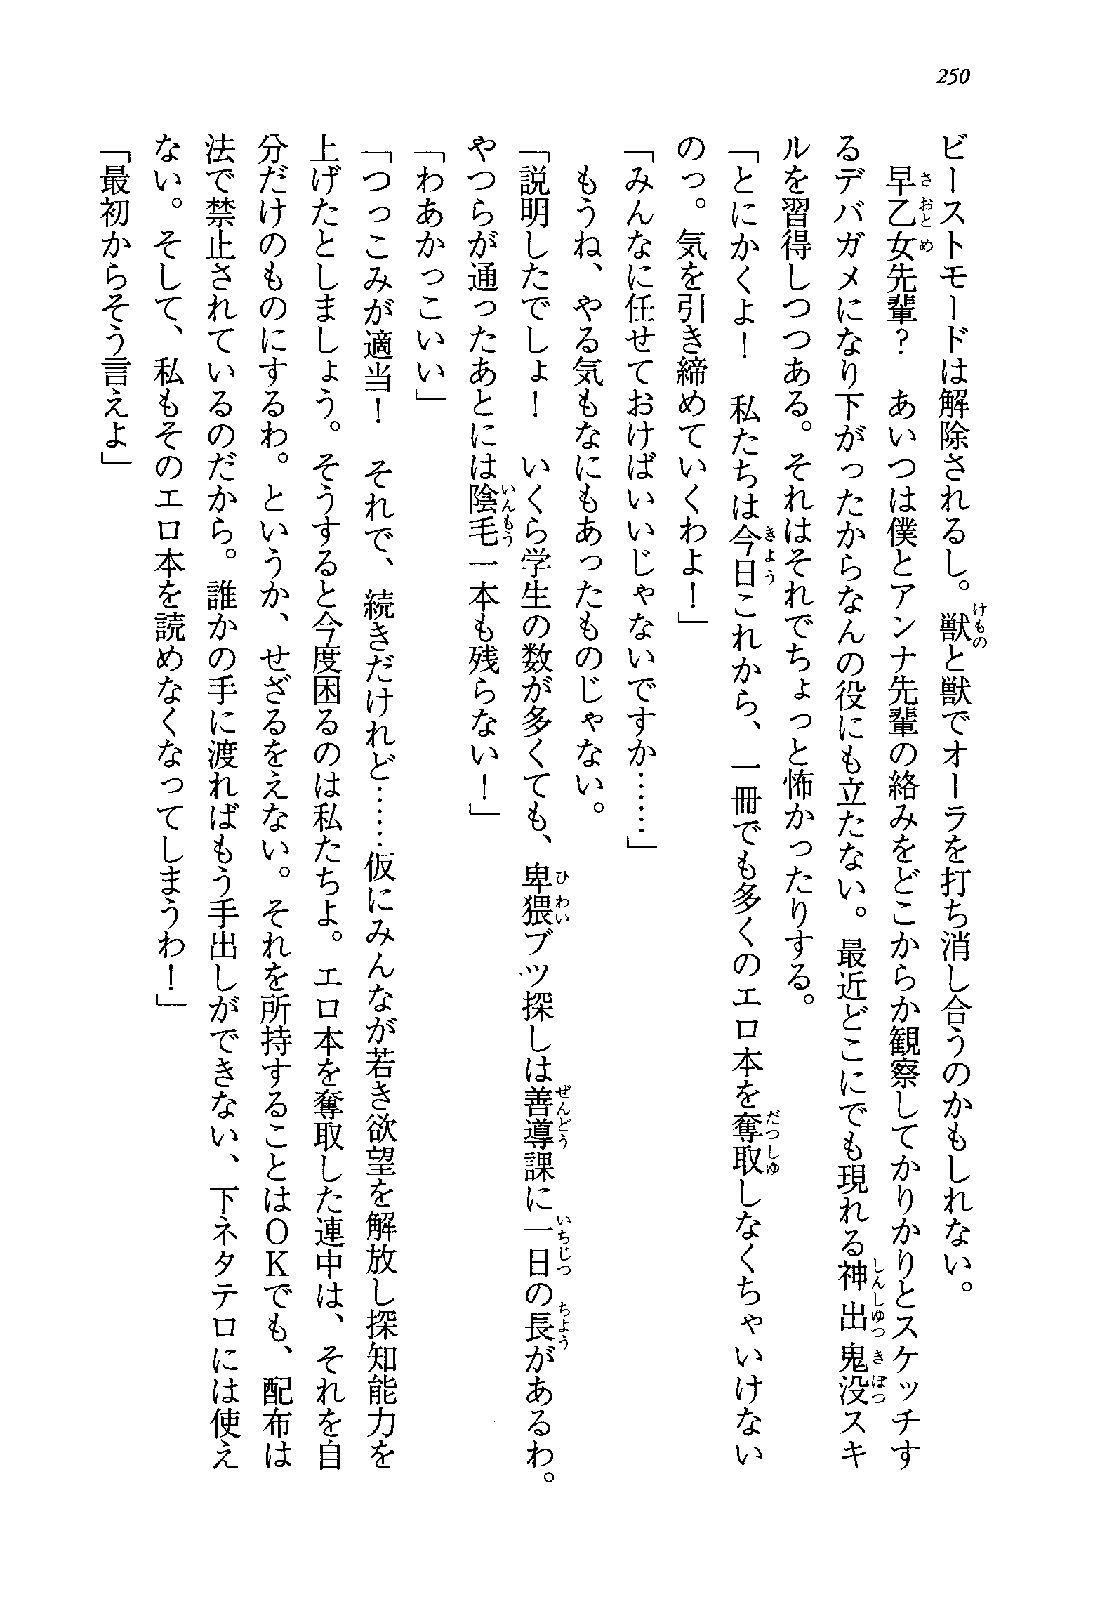 250
ビーストモードは解除されるし。獣と獣でオーラを打ち消し合うのかもしれない。
早乙女先輩？　あいつは僕とアンナ先輩の絡みをどこからか観察してかりかりとスケッチす
るデバガメになり下がったからなんの役にも立たない。最近どこにでも現れる神出鬼没スキ
ルを習得しつつある。それはそれでちょっと怖かったりする。
「とにかくよ！　私たちは今日これから、一冊でも多くのエロ本を奪取しなくちゃいけない
のっ。気を引き締めていくわよ！」
「みんなに任せておけばいいじゃないですか……」
もうね、やる気もなにもあったものじゃない。
「説明したでしょ！　いくら学生の数が多くても、卑猥ブツ探しは善導課に一日の長があるわ。
やつらが通ったあとには陰毛一本も残らない！」
「わあかっこいい」
「つっこみが適当！　それで、続きだけれど……仮にみんなが若き欲望を解放し探知能力を
上げたとしましょう。そうすると今度困るのは私たちよ。エロ本を奪取した連中は、それを自
分だけのものにするわ。というか、せざるをえない。それを所持することはOKでも、配布は
法で禁止されているのだから。誰かの手に渡ればもう手出しができない、下ネタテロには使え
ない。そして、私もそのエロ本を読めなくなってしまうわ！」
「最初からそう言えよ」